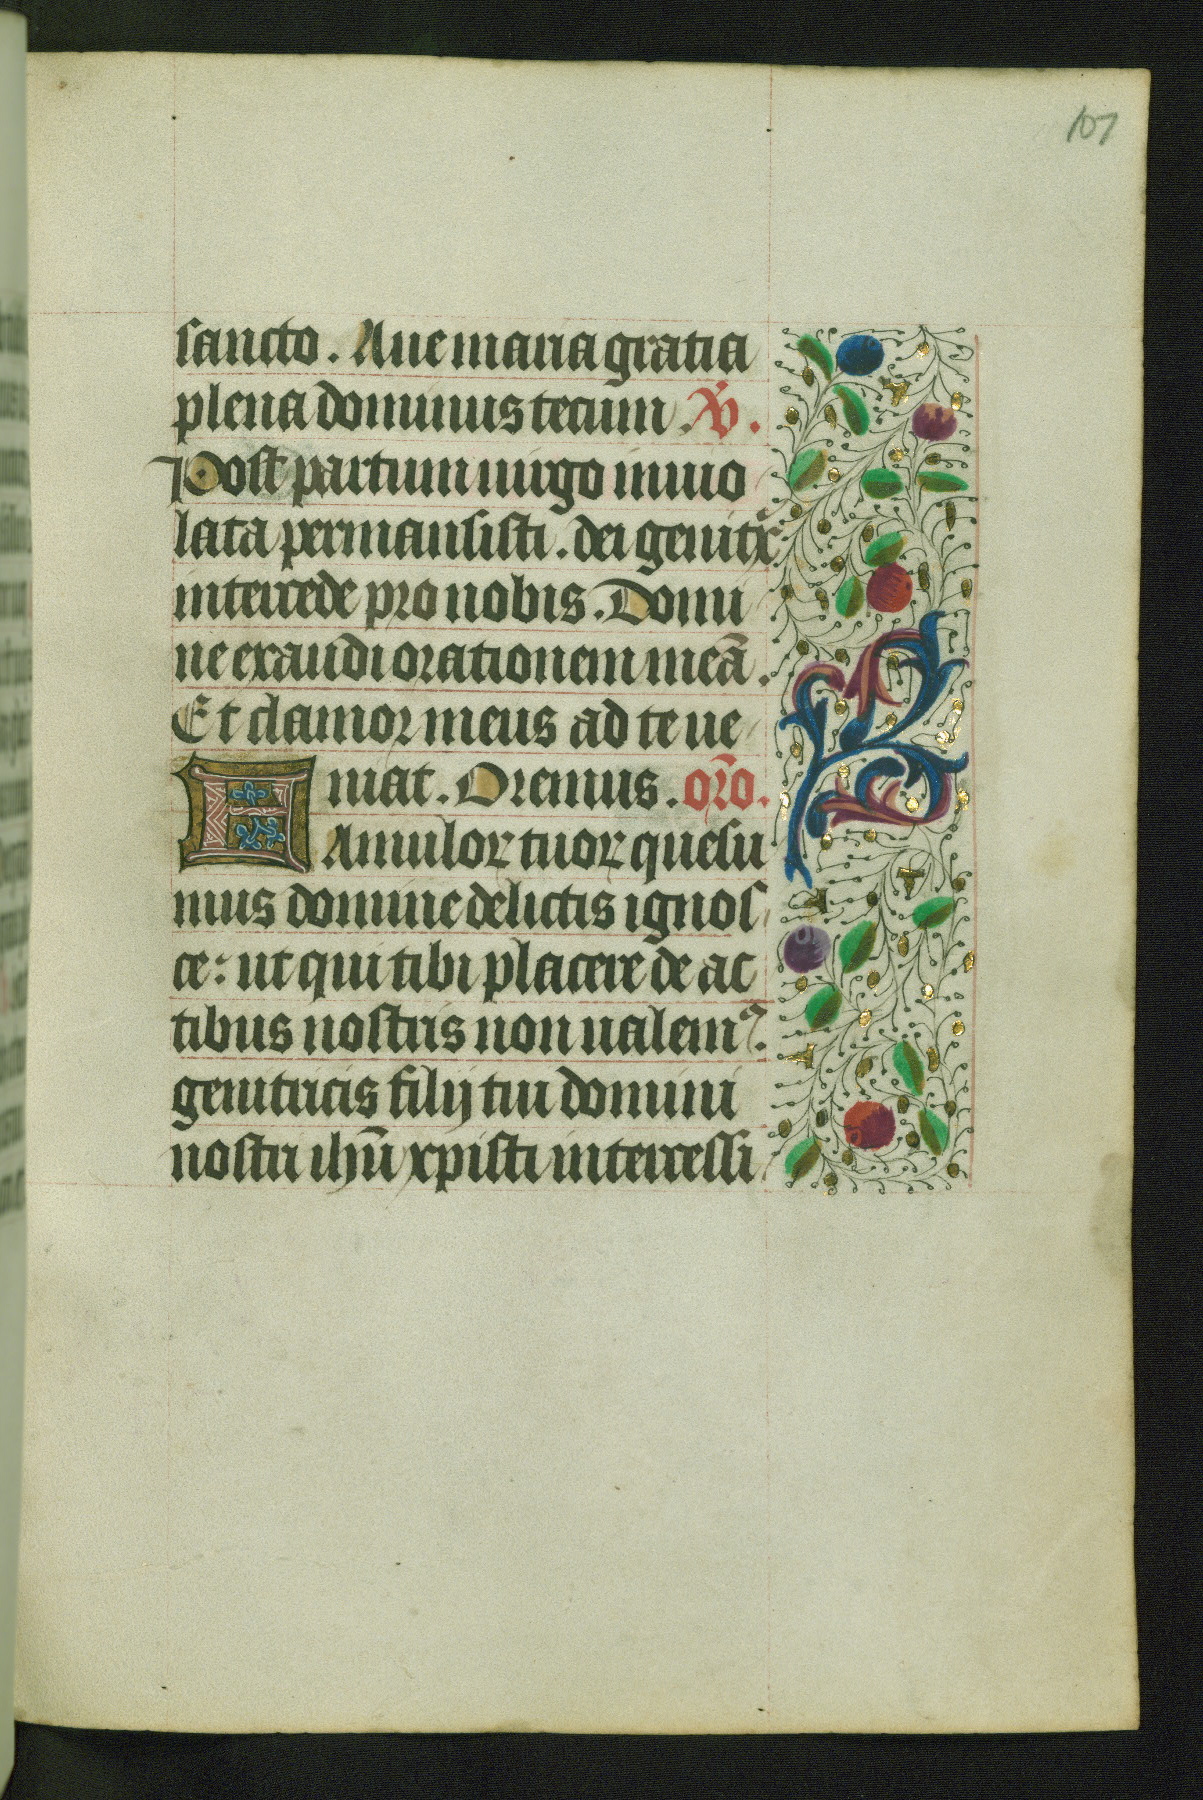 107
sancto. Aue maria gratia
plena dominus tecum. V̄.
Post partum uirgo inuio
lata permansisti. dei genitx̄
intercede pro nobis. Domi
ne exaudi orationem meā.
Et clamor meus ad te ue
niat. Oremus. or̄o.
Famuloꝝ tuoꝝ quesu
mus domine delictis ignos
ce: ut qui tibi placere de ac
tibus nostris non ualemꝰ.
genitricis filij tui domini
nostri ihū xpisti intercessi